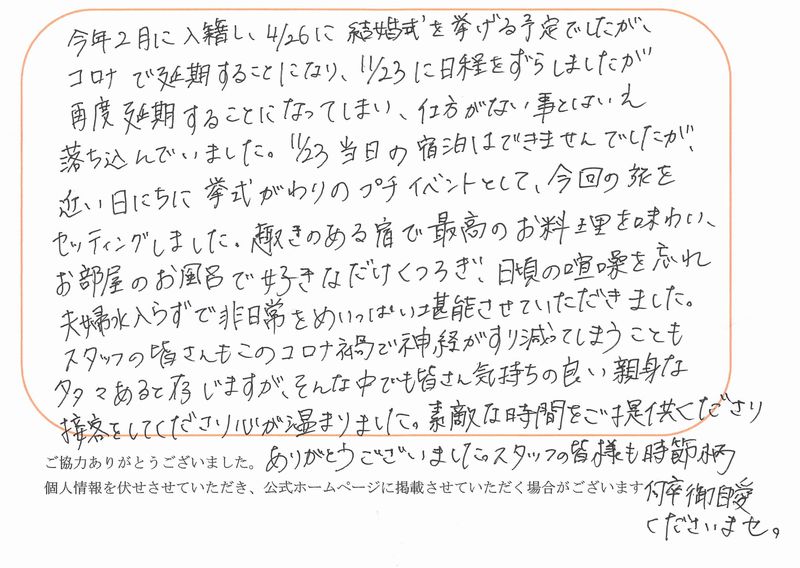 今年2月に入籍し、4/26に結婚式を挙げる予定でしたが、
コロナで延期することになり、11/23に日程をずらしましたが
再度延期することになってしまい、仕方がない事とはいえ
落ち込んでいました。11/23当日の宿泊はできませんでしたが、
近い日にちに挙式がわりのプチイベントとして、今回の旅を
セッティングしました。趣きのある宿で最高のお料理を味わい、
お部屋のお風呂で好きなだけくつろぎ、日頃の喧噪を忘れ
夫婦水入らずで非日常をめいっぱい堪能させていただきました。
スタッフの皆さんもこのコロナ禍で神経がすり減ってしまうことも
多々あると存じますが、そんな中でも皆さん気持ちの良い親身な
接客をしてくださり心が温まりました。素敵な時間をご提供くださり
ありがとうございました。スタッフの皆様も時節柄
何卒御自愛
くださいませ。
ご協力ありがとうございました。
個人情報を伏せさせていただき、公式ホームページに掲載させていただく場合がございます